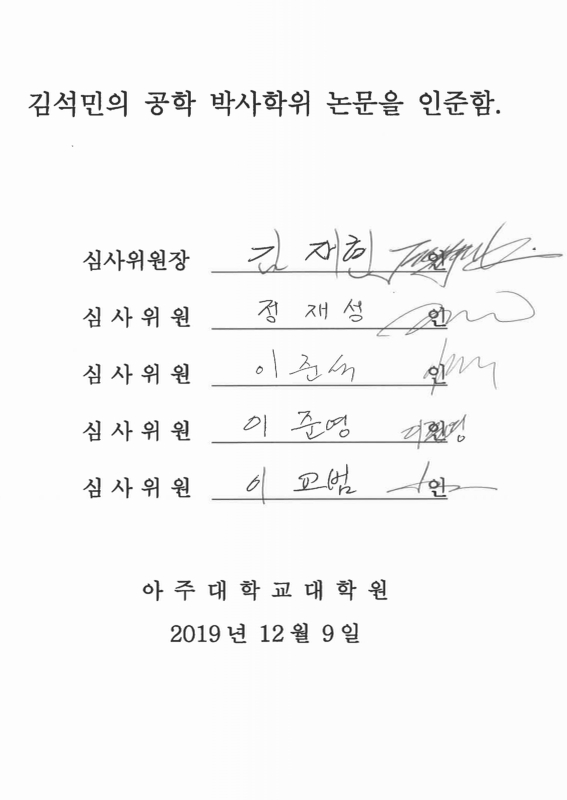 김석민의 공학 박사학위 논문을 인준함.
심사위원장 김 재현 인
심 사 위 원 정 재 성 인
심 사 위 원 이 준석 인
심 사 위 원 이 준영 인
심 사 위 원 이 교범 인
아 주 대 학 교 대 학 원
2019 년 12 월 9 일